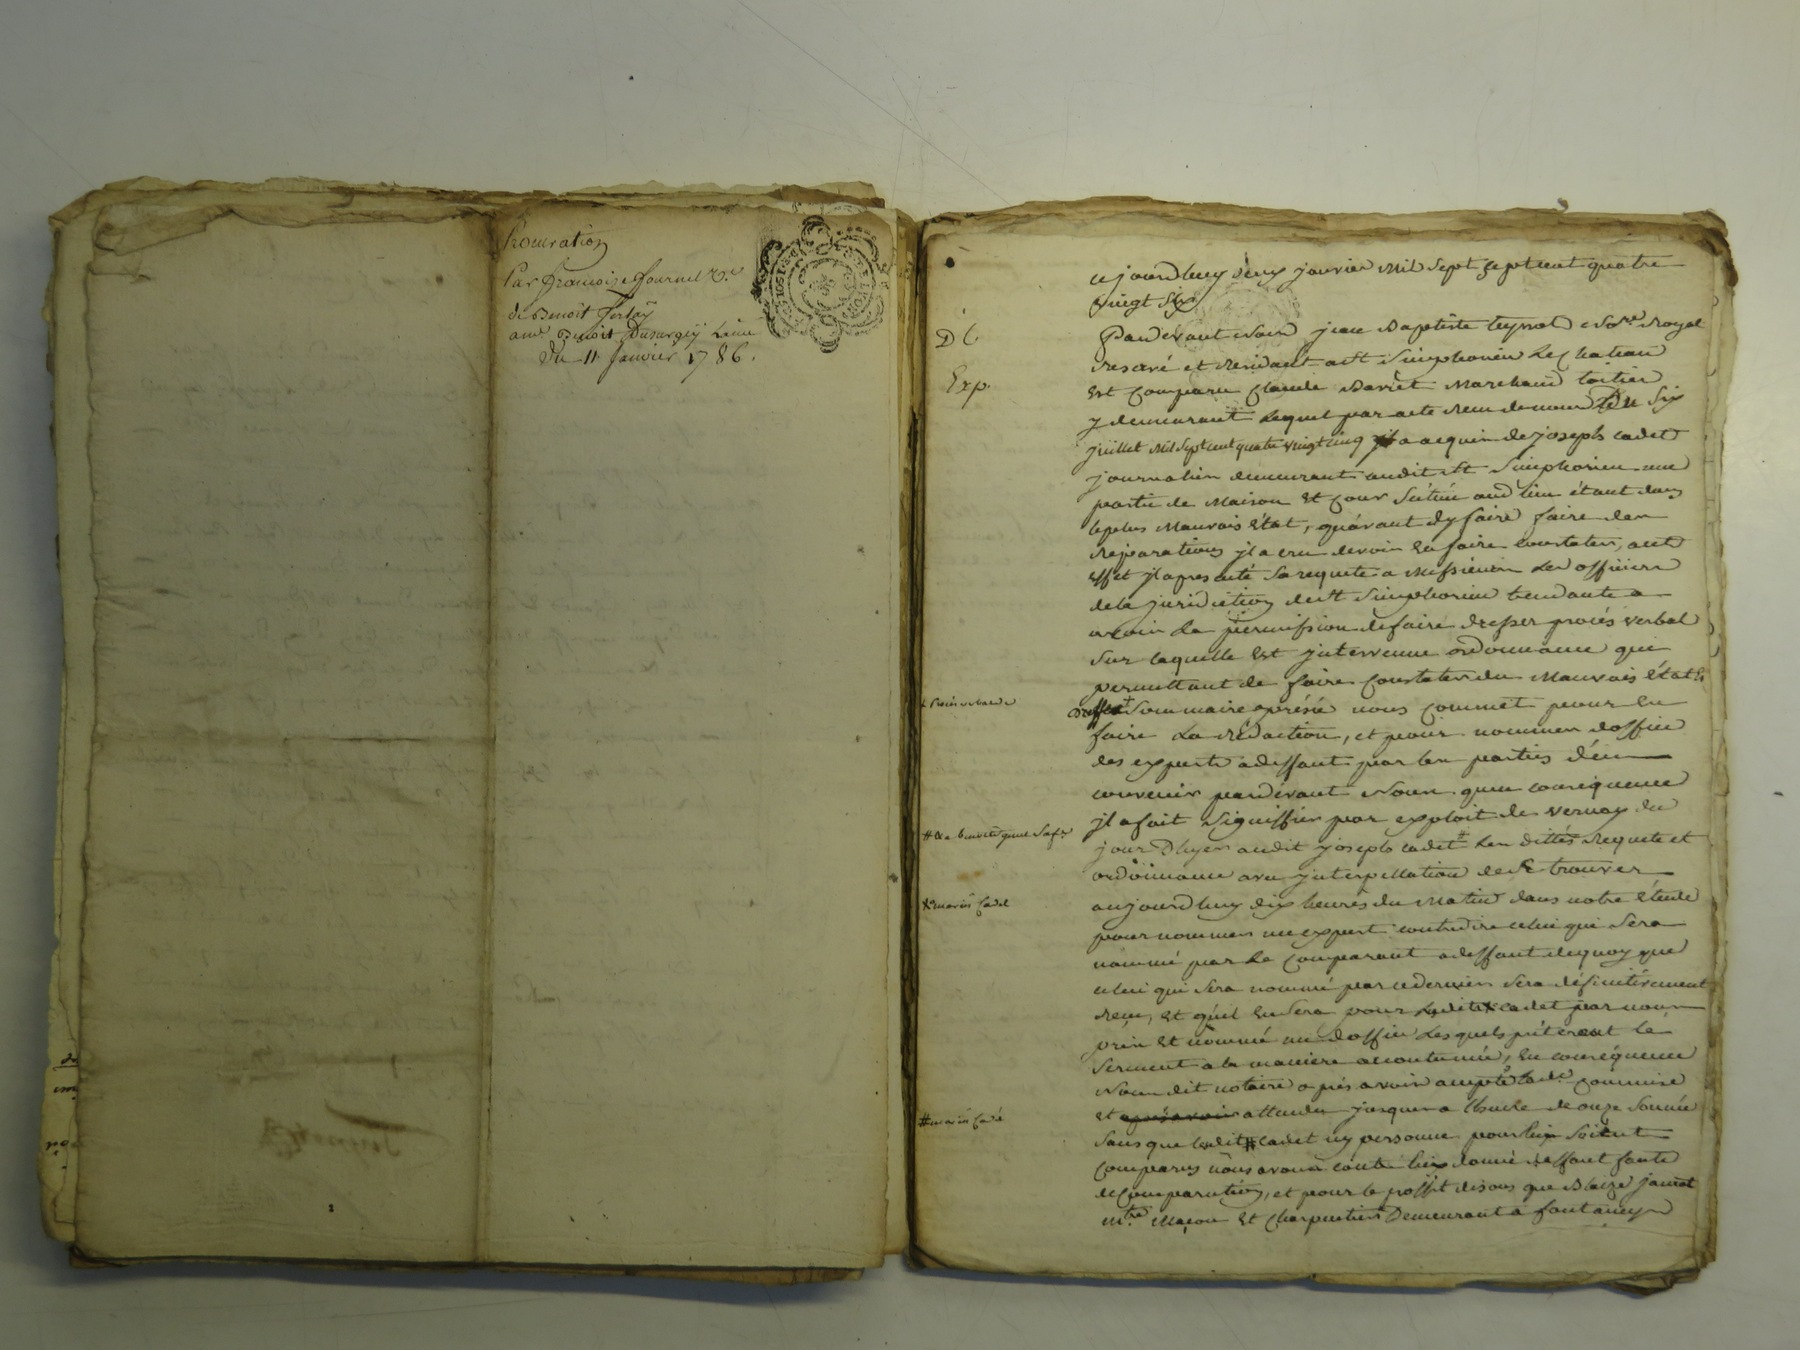 Procuration
Par Françoise fournel v.e
de Benoit
a me Benoit Dusurgey
du 11 Janvier 1786.
cejourdhuy deux janvier mil sept sept cent quatre
vingt Six
Pardevant nous jean Baptiste teynot Not.re Royal
D C.
reservé et residant a St Simphorien Le Chateau
Exp.
est comparu Claude marchand
y demeurant Lequel par acte reçu de nous Le Six
juillet mil sept cent quatre vingt cinq a acquis de joseph cadet
journalier demeurant audit St Simphorien une
partie de Maison et cour Scituée aud lieu étant dans
leplus Mauvais état, quavant dy faire faire des
reparations jl a cru devoir les faire constater, acet
effet jl apresenté sa requete a Messieurs Les officiers
dela juridiction de St Simphorien tendante a
avoir La permission defaire dresser procés verbal
sur laquelle est jntervenue ordonnance qui
permettant de faire constater du Mauvais état
Procès verbal
Sommaire nous commet pour en
faire La rédaction, et pour nommer doffice
des experts adeffaut par les parties d'en
convenir pardevant Nous. quen consequence
jl afait signiffier par exploit de vernay du
jour Dhyer audit joseph cadet # Les dittes requete et
ordonnance avec jnterpellation de se trouver
aujourdhuy dix heures du Matin dans notre étude
cadet
pour nommer un expert contradire celui qui Sera
nommé par Le comparant adeffaut dequoy que
celui qui sera nommé par cedernier sera définitivement
reçu, et quil en sera pour cadet par nous
pris et nommé un doffice Lesquels préteront Le
serment ala maniere accoutumée, en consequence
Nous dit notaire aprés avoir accepté lad.e commise
et attendu jusques a lheure de onze Sonnée
sans que cadet ny personne pour Soient
comparus nous avons donné deffaut faute
de comparution, et pour le proffit disons que Blaize
m.tre Maçon et Charpentier Demeurant a